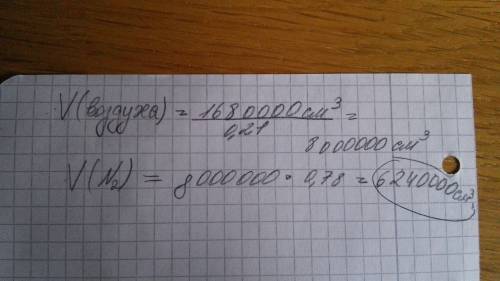 V(воздуха) = 1680000 см³ / 0,21 =
8000000 см³
V(N₂) = 8000000 · 0,78 = 6240000 см³